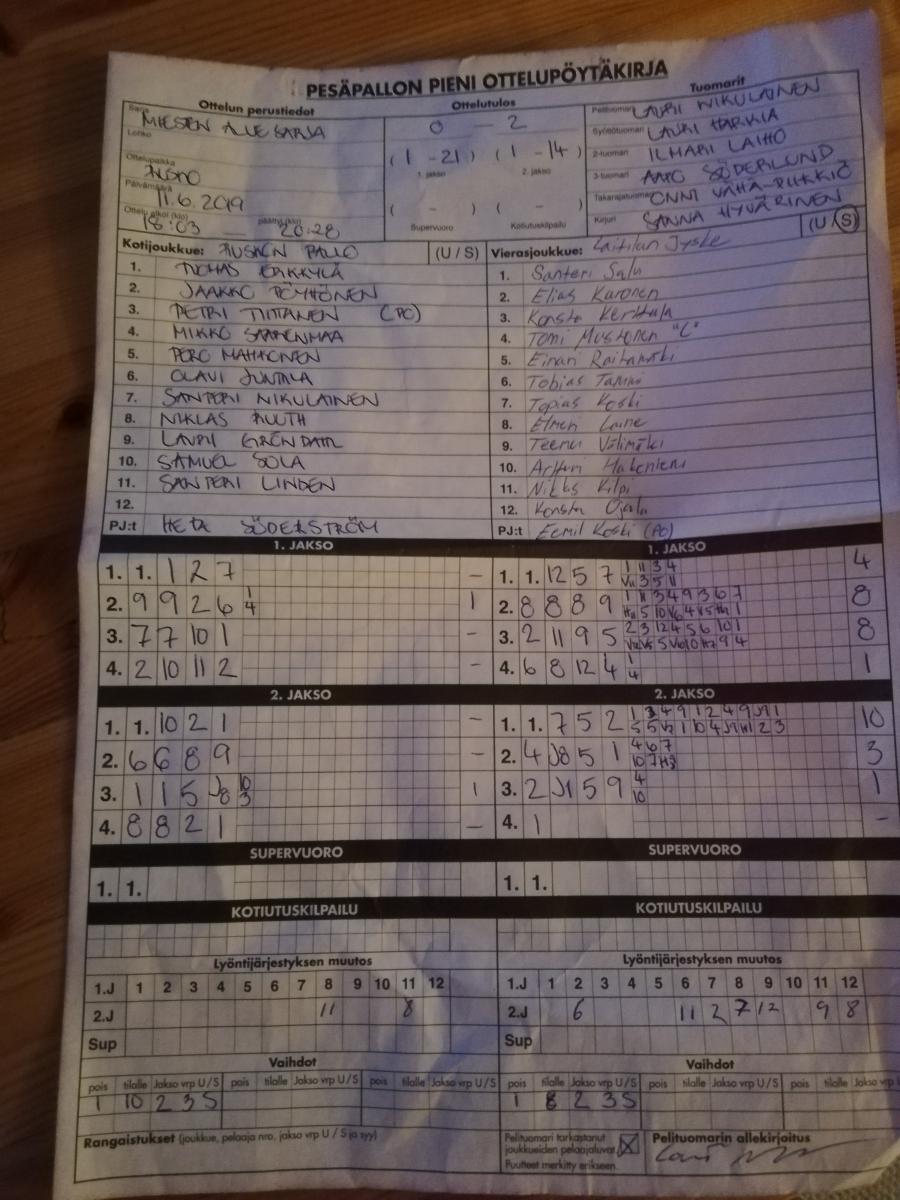 PESÄPALLON PIENI OTTELUPÖYTÄKIRJA
Ottelun perustiedot Ottelutulos Tuomarit
Sarja MIESTEN ALUESARJA
Lohko
Ottelupaikka
Päivämäärä 11.6.2019
Ottelu alkoi (klo) 18:03 — päättyi (klo) 20:28
0 - 2
(1 - 21) (1 - 14)
1. jakso 2. jakso
( - ) ( - )
Supervuoro Kotiutuskilpailu
Pelituomari LAURI NIKULAINEN
Syöttötuomari LAURI HARKIA
2-tuomari ILMARI LAIHO
3-tuomari AATO SÖDERLUND
Takarajatuomari ONNI VÄHÄ-PIIKKIÖ
Kirjuri SANNA HYVÄRINEN
Kotijoukkue: PALLO (U / S)
1. TUOMAS
2. JAAKKO PÖYHÖNEN
3. PETRI TIITTANEN (PC)
4. MIKKO SAARENMAA
5. PERO
6. OLAVI JUNTALA
7. SANTERI NIKULAINEN
8. NIKLAS RUUTH
9. LAURI GRÖNDAHL
10. SAMUEL SOLA
11. SANTERI LINDEN
12.
PJ:t HETA SÖDERSTRÖM
Vierasjoukkue: Laitilan Jyske (U / S)
1. Santeri Salu
2. Elias Karonen
3. Konsta Kerttula
4. Tomi Mustonen "C"
5. Einari
6. Tobias Tammi
7. Topias Koski
8. Elmeri Laine
9. Teemu Välimäki
10. Artturi
11. Niklas Kilpi
12. Konsta Ojala
PJ:t Eemil Koski (PC)
1. JAKSO
1. 1. 1 2 7 —
2. 9 9 2 6 1 4 1
3. 7 7 10 1 -
4. 2 10 11 2 -
1. JAKSO
1. 1. 12 5 7 1 11 3 4 4
2. 8 8 8 9 1 11 3 4 9 3 6 7 8
3. 2 11 9 5 2 3 12 4 5 6 10 1 8
4. 6 8 12 4 1 4 1
2. JAKSO
1. 1. 10 2 1 -
2. 6 6 8 9 -
3. 1 1 5 J8 10 3 1
4. 8 8 2 1 —
2. JAKSO
1. 1. 7 5 2 10
2. 4 J8 5 1 4 6 7 3
3. 2 J1 5 9 4 10 1
4. 1 -
SUPERVUORO SUPERVUORO
1. 1. 1. 1.
KOTIUTUSKILPAILU KOTIUTUSKILPAILU
Lyöntijärjestyksen muutos
1.J 1 2 3 4 5 6 7 8 9 10 11 12
2.J 11 8
Sup
Lyöntijärjestyksen muutos
1.J 1 2 3 4 5 6 7 8 9 10 11 12
2.J 6 11 2 7 12 9 8
Sup
Vaihdot
pois tilalle Jakso vrp U / S pois tilalle Jakso vrp U / S pois tilalle Jakso vrp U / S
1 10 2 3 S
Vaihdot
pois tilalle Jakso vrp U / S pois tilalle Jakso vrp U / S pois tilalle Jakso vrp
1 8 2 3 S
Rangaistukset (joukkue, pelaaja nro, jakso vrp U / S ja syy)
Pelituomari tarkastanut
joukkueiden pelaajaluvat
Puutteet merkitty erikseen.
Pelituomarin allekirjoitus